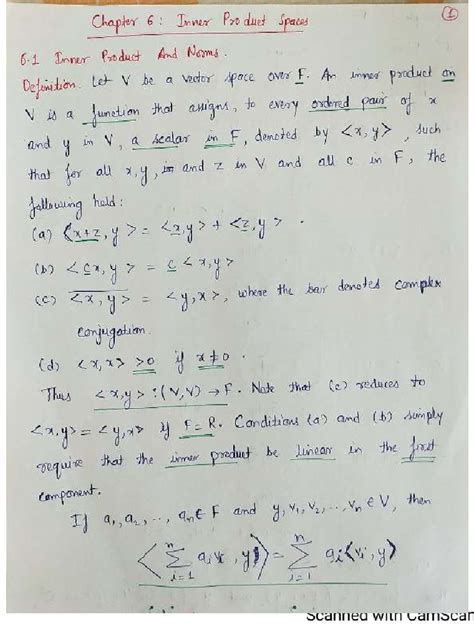 Chapter 6: Inner Product Spaces
①
6.1 Inner Product And Norms.
Definition. Let V be a vector space over F. An inner product on
V is a function that assigns, to every ordered pair of x
and y in V, a scalar in F, denoted by <x,y>, such
that for all x, y, and z in V and all c in F, the
following hold:
(a) <x+z, y> = <x,y> + <z,y>.
(b) <cx, y> = c<x,y>
(c) <x,y>‾ = <y,x>, where the bar denotes complex
conjugation.
(d) <x,x> >0 if x≠0.
Thus <x,y> : (V,V) → F. Note that (c) reduces to
<x,y> = <y,x> if F=R. Conditions (a) and (b) simply
require that the inner product be linear in the first
component.
If a₁, a₂, ..., aₙ ∈ F and y, v₁, v₂, ..., vₙ ∈ V, then
<∑ⁿᵢ₌₁ aᵢvᵢ, y> = ∑ⁿᵢ₌₁ aᵢ<vᵢ, y>
Scanned with CamScan